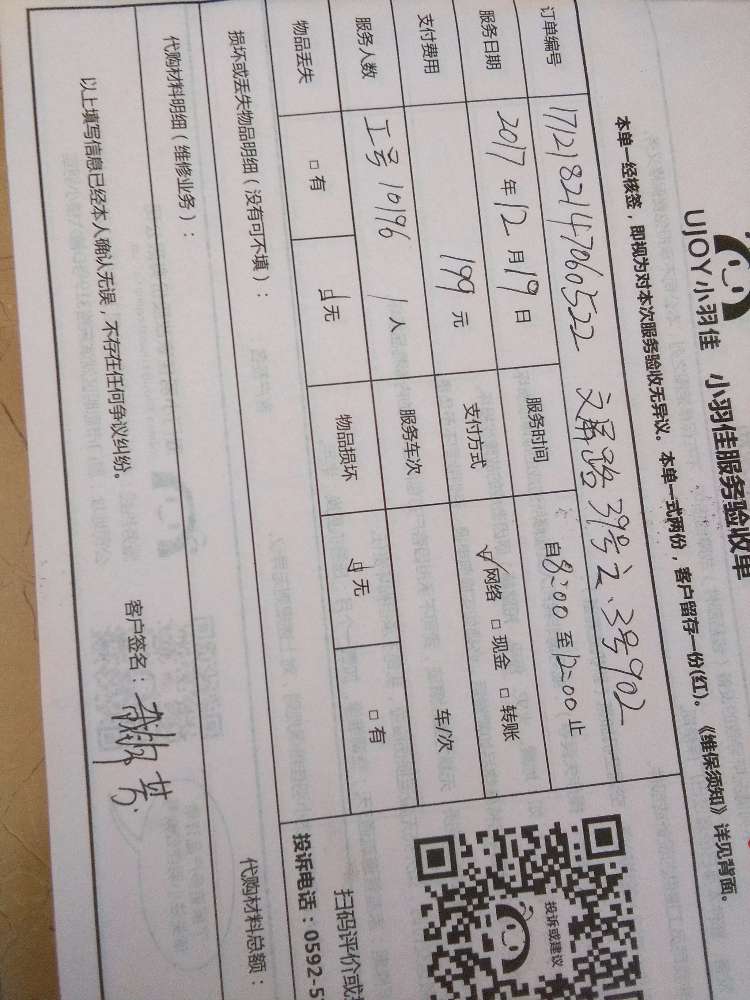 UJOY小羽佳 小羽佳服务验收单
本单一经核签，即视为对本次服务验收无异议。本单一式两份，客户留存一份(红)。《维保须知》详见背面。
订单编号 1712182147060522 文屏路39号之.3号902
服务日期 2017年12月19日 服务时间 自8:00至12:00止
支付费用 199元 支付方式 ☑网络 □现金 □转账
服务人数 工号10196 1人 服务车次 车/次
物品丢失 □有 ☑无 物品损坏 ☑无 □有
损坏或丢失物品明细（没有可不填）：
代购材料明细（维修业务）： 代购材料总额：
以上填写信息已经本人确认无误，不存在任何争议纠纷。
客户签名：
投诉或建议
扫码评价或
投诉电话：0592-5